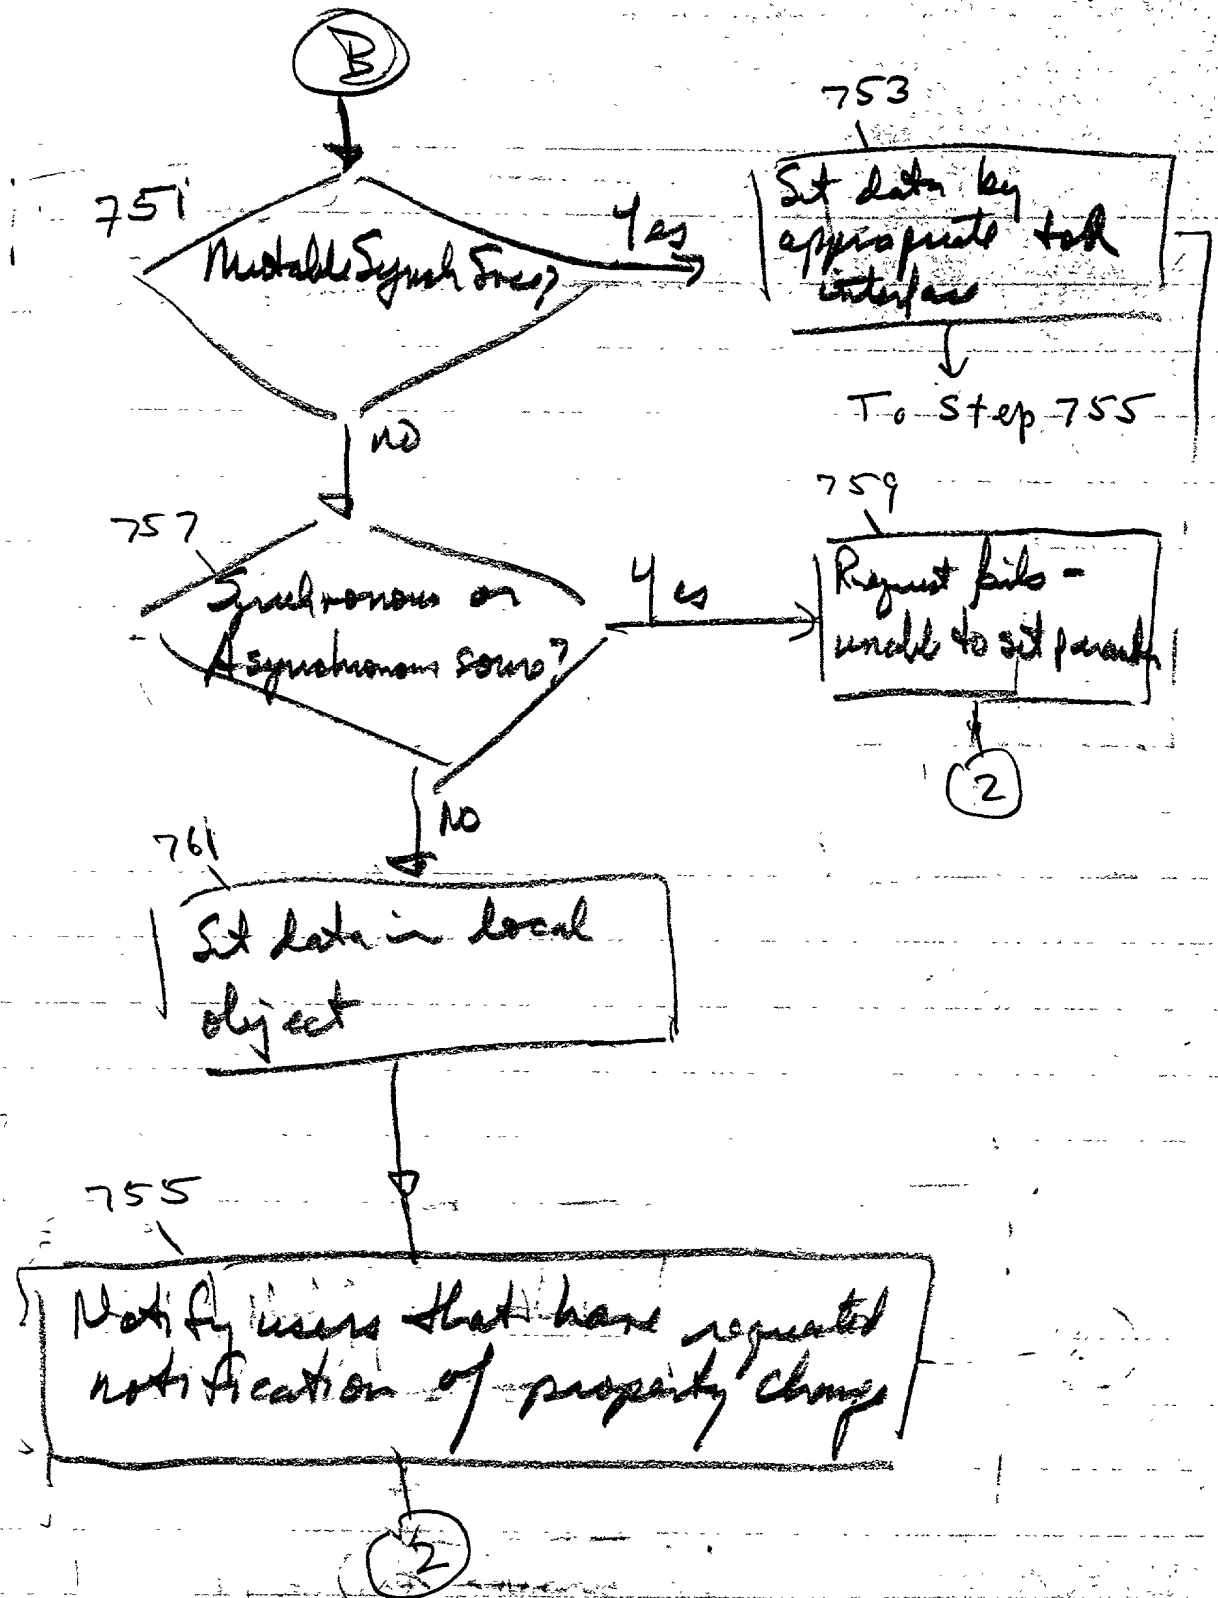 B
751
Mutable Synch Srcs?
Yes
753
Set data by
appropriate tool
interface
To Step 755
NO
757
Synchronous or
Asynchronous source?
Yes
759
Request fails -
unable to set
2
NO
761
Set data in local
object
755
Notify users that have requested
notification of property change
2